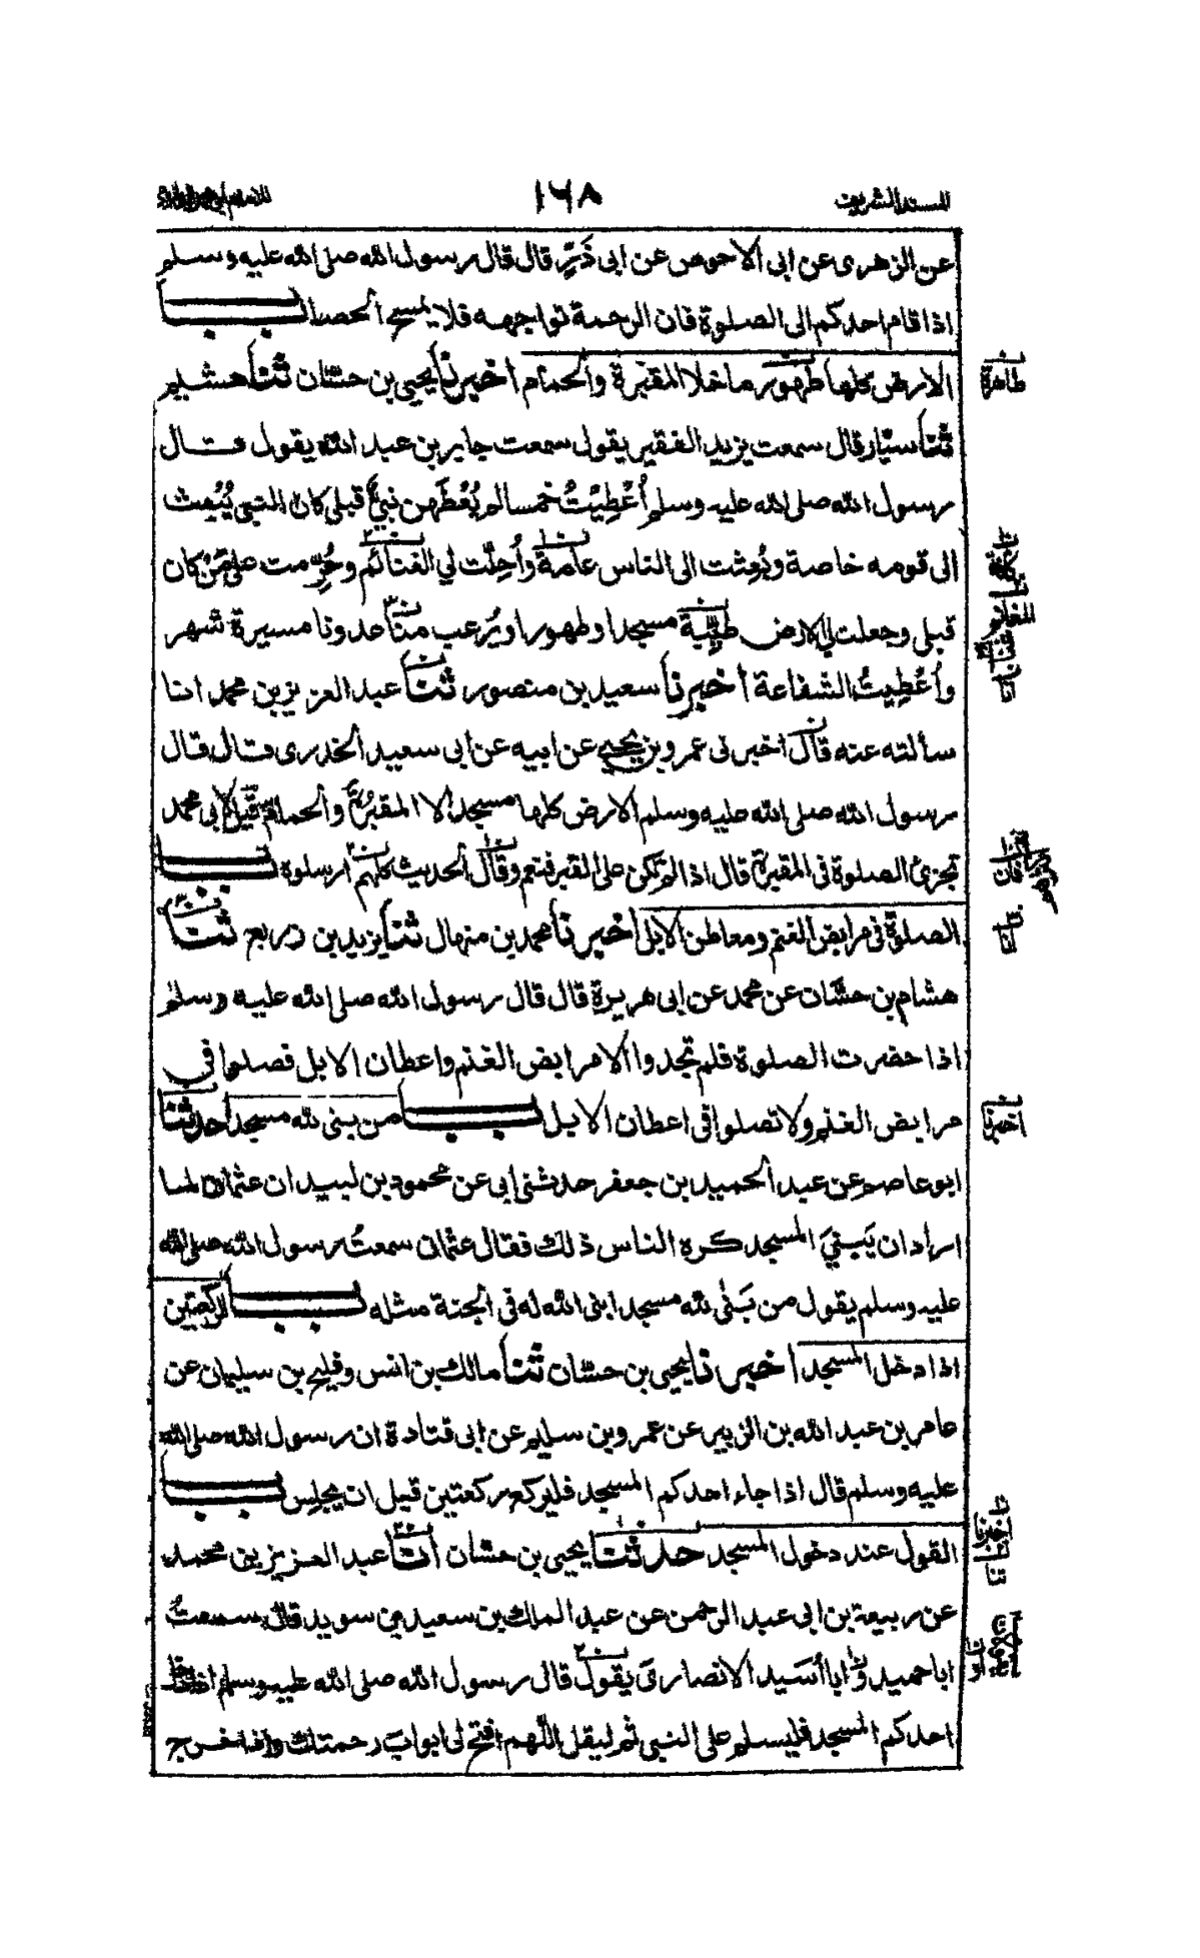 المسند الشريف
١٦٨
عن الزهرى عن ابى الاحوص عن ابى ذَرٍّ قال قال رسول الله صلى الله عليه وسلم
اذا قام احدكم الى الصلوة فان الرحمة تواجهه فلا يمسح الحصا باب
الارض كلها طهور ما خلا المقبَرة والحمام اخبرنا يحيى بن حسّان ثنا هشيم
ثنا سيّار قال سمعت يزيد الفقير يقول سمعت جابر بن عبد الله يقول قال
رسول الله صلى الله عليه وسلم اُعْطِيْتُ خمسا لم يُعْطَهن نبيٌّ قبلى كان النبى يُبْعث
الى قومه خاصة وبُعِثت الى الناس عامة واُحِلَّت لي الغنائم وحُرِّمت على مَنْ كان
قبلى وجعلت لي الارض طَيِّبة مسجدا وطهورا ويُرعب منا عدونا مسيرة شهر
واُعْطِيتُ الشفاعة اخبرنا سعيد بن منصور ثنا عبد العزيز بن محمد انا
سألته عنه قال اخبرنى عمرو بن يحيى عن ابيه عن ابى سعيد الخدرى قال قال
رسول الله صلى الله عليه وسلم الارض كلها مسجد الا المقبُرة والحمام قيل لابى محمد
تجزئ الصلوة فى المقبرة قال اذا لم تكن على القبر فنعم وقال الحديث كلهم ارسلوه باب
الصلوة فى مرابض الغنم ومعاطن الابل اخبرنا محمد بن منهال ثنا يزيد بن زريع ثنا
هشام بن حسّان عن محمد عن ابى هريرة قال قال رسول الله صلى الله عليه وسلم
اذا حضرت الصلوة فلم تجدوا الا مرابض الغنم واعطان الابل فصلوا في
مرابض الغنم ولا تصلوا فى اعطان الابل باب من بنى لله مسجدا حدثنا
ابو عاصم عن عبد الحميد بن جعفر حدثنى ابى عن محمود بن لبيد ان عثمان لما
اراد ان يَبنيَ المسجد كره الناس ذلك فقال عثمان سمعتُ رسول الله صلى الله
عليه وسلم يقول من بَنٰى لله مسجدا ابنى الله له فى الجنة مثله باب الركعتين
اذا دخل المسجد اخبرنا يحيى بن حسّان ثنا مالك بن انس وفليح بن سليمان عن
عامر بن عبد الله بن الزبير عن عمرو بن سليم عن ابى قتادة ان رسول الله صلى الله
عليه وسلم قال اذا جاء احدكم المسجد فليركع ركعتين قبل ان يجلس باب
القول عند دخول المسجد حدثنا يحيى بن حسّان انا عبد العزيز بن محمد
عن ربيعة بن ابى عبد الرحمن عن عبد الملك بن سعيد بن سويد قال سمعتُ
ابا حميد و ابا أسَيد الانصارىَ يقول قال رسول الله صلى الله عليه وسلم اذا دخل
احدكم المسجد فليسلم على النبى ثم ليقل اللّهم افتح لى ابوابَ رحمتك واذا خرج
طاهرة
المغانم
فان
انا
اخبرنا
اخبرنا
ثنا